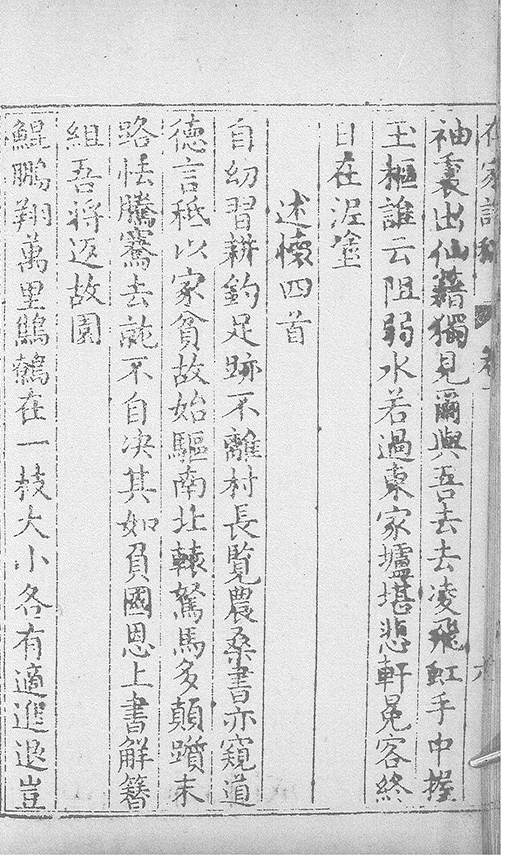 袖裏出仙籍獨見爾與吾去去凌飛虹手中握
玉樞誰云阻弱水若過東家壚堪悲軒冕客終
日在泥塗
述懷四首
自幼習耕釣足跡不離村長覧農桑書亦窺道
德言秪以家貧故始驅南北轅駑馬多顛躓末
路怯騰騫去就不自决其如負國恩上書解簪
組吾將返故園
鯤鵬翔萬里鷦鷯在一枝大小各有適進退豈